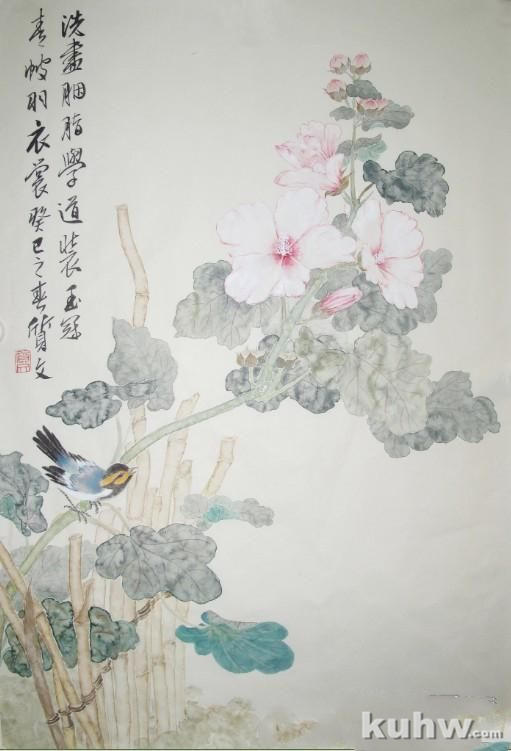 洗盡胭脂學道裝玉冠
青帔羽衣裳癸巳之春質文
kuhw.com